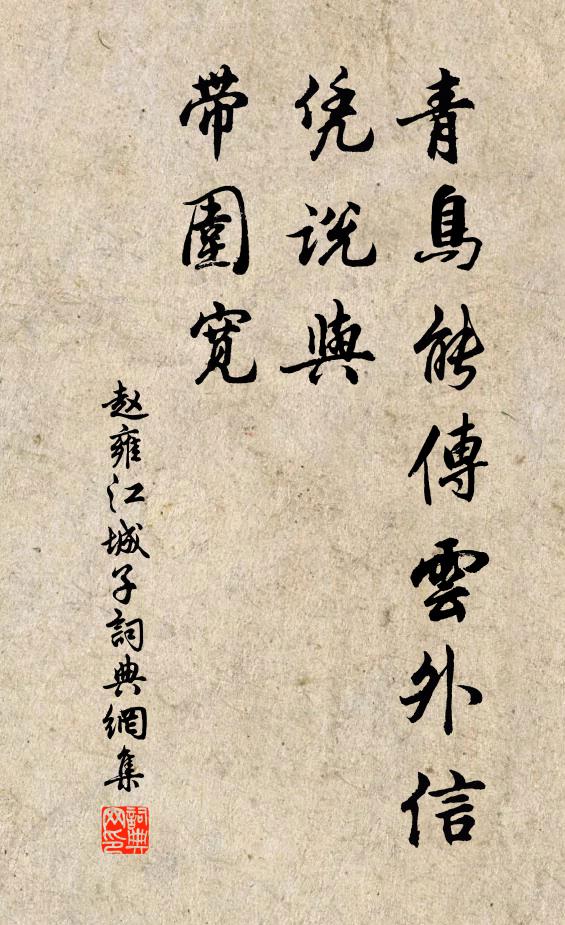 青鳥能傳雲外信
凭說與
带圍寬
赵雍江城子詞典網集
詞典网印